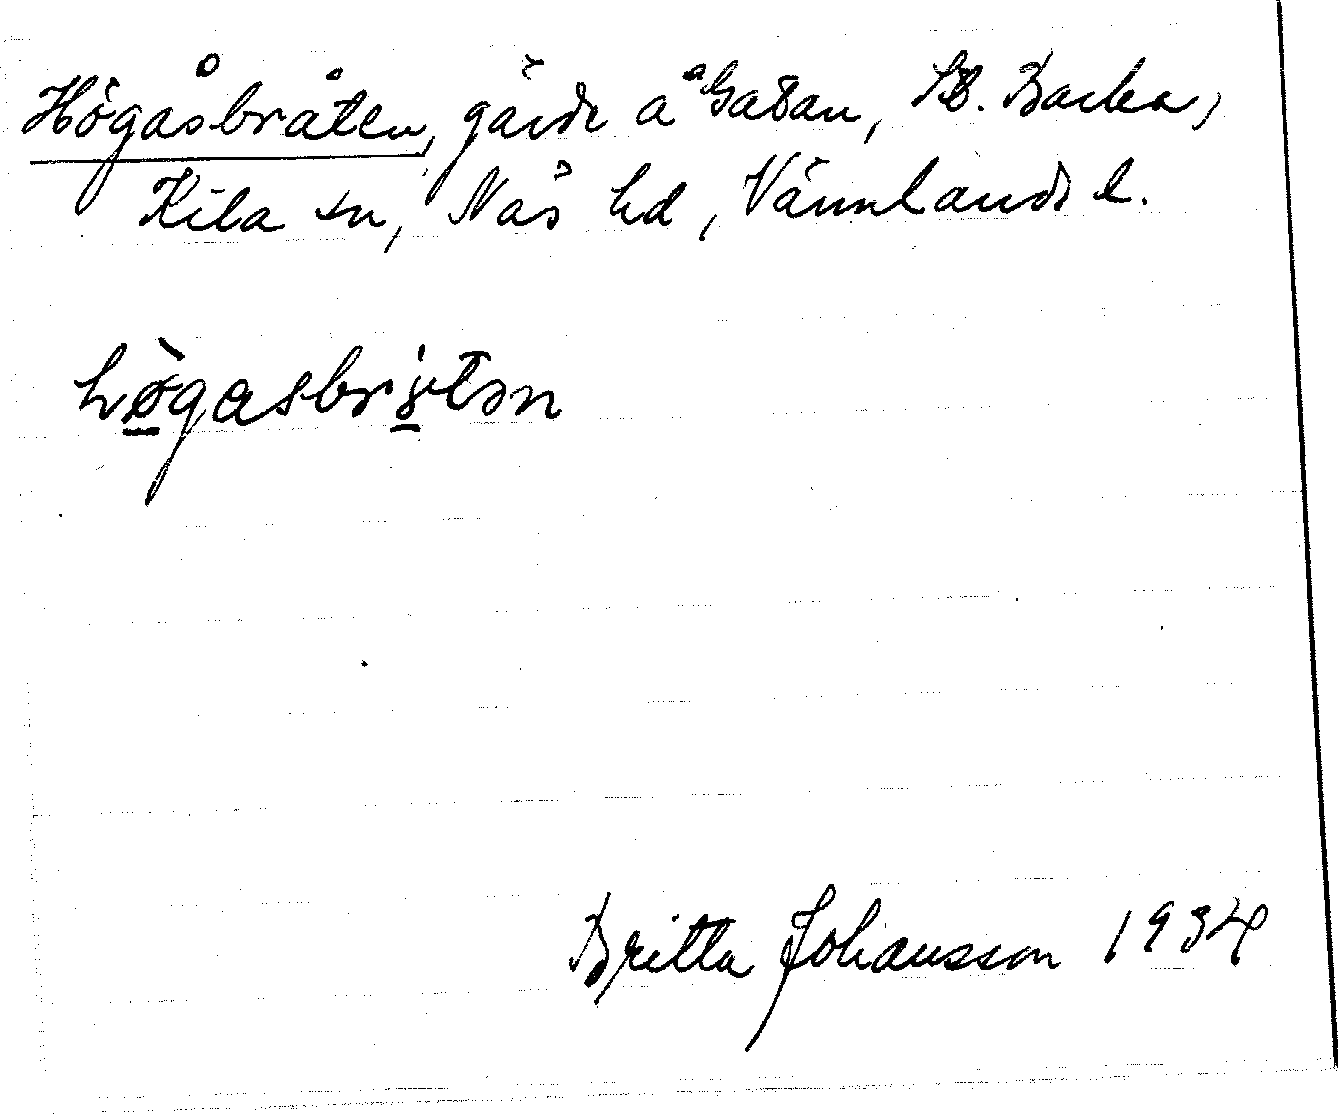 Högåsbråten, gärde å Gatan, St. Backa,
Kila sn, Näs hd, Värmlands l.
högasbr tən
Britta Johansson 1934